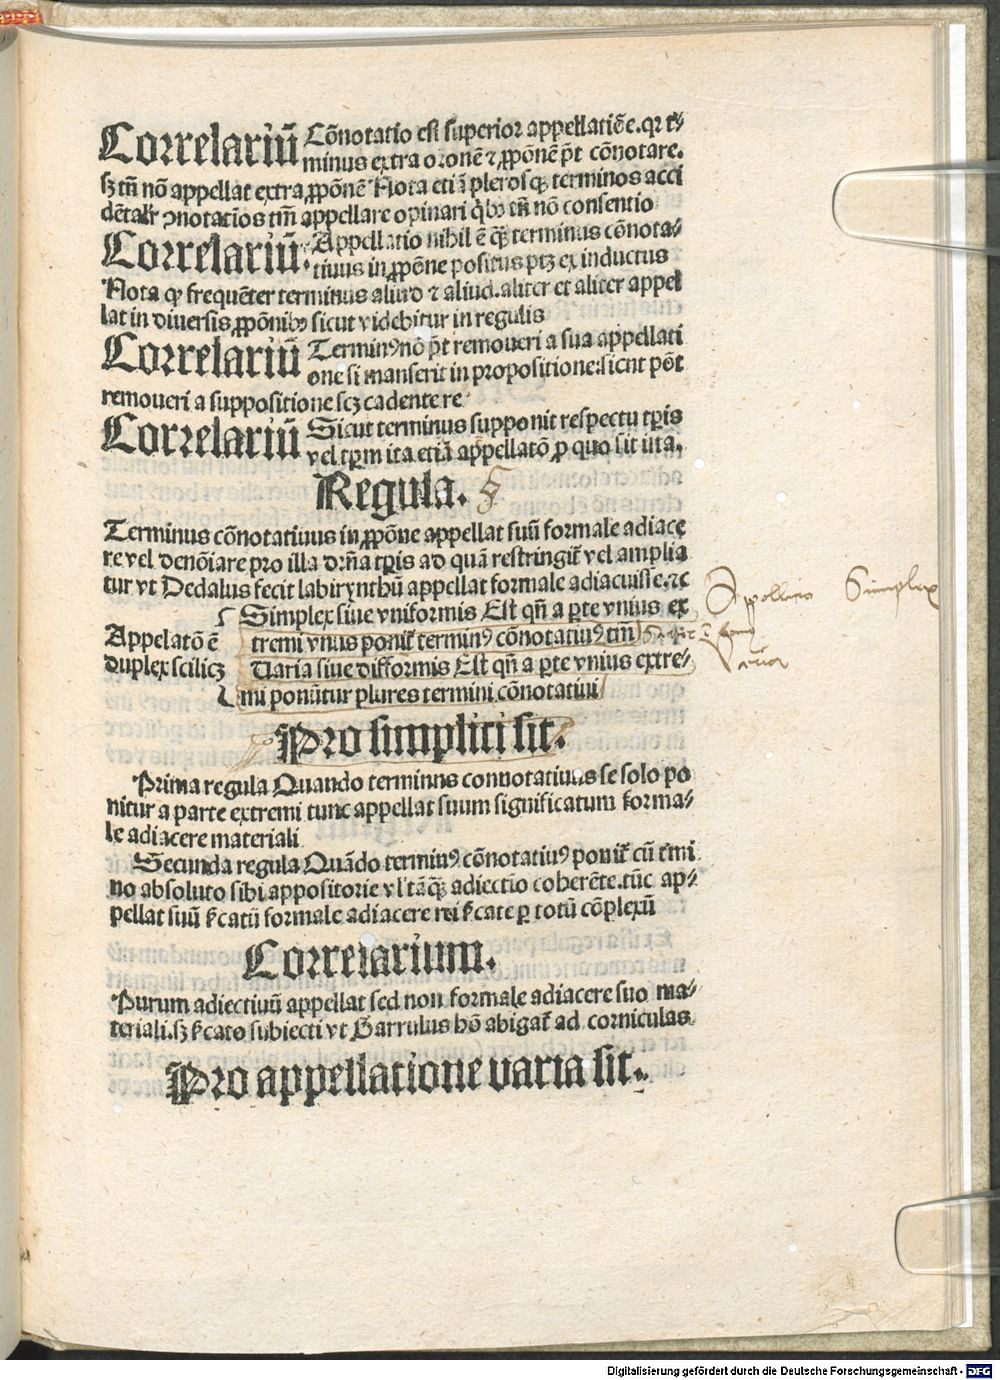 Correlariū Cōnotatio est superior appellatiōe. qꝛ t'-
minus extra oꝛonē ⁊ ꝓpōnē pt̄ cōnotare.
sꝫ tn̄ nō appellat extra ꝓpōnē Nota etiā plerosqꝫ terminos acci
dētalr̄ ꝯnotatios tm̄ appellare opinari qͥbꝰ tn̄ nō consentio
Correlariū. Appellatio nihil ē qꝫ terminus cōnota-
tiuus in ꝓpōne positus ptꝫ ex inductus
Nota ꝙ frequēter terminus aliud ⁊ aliud. aliter et aliter appel
lat in diuersis ꝓpōnibꝰ sicut videbitur in regulis
Correlariū Terminꝰ nō pt̄ remoueri a sua appellati
one si manserit in propositione: sicut pōt
remoueri a suppositione scꝫ cadente re
Correlariū Sicut terminus supponit respectu tꝑis
vel tꝑm ita etiā appellatō ꝓ quo sit ita.
Regula. §
Terminus cōnotatiuus in ꝓpōne appellat suū formale adiace
re vel denōiare pro illa dr̄na tꝑis ad quā restringit̄ vel amplia
tur vt Dedalus fecit labirynthū appellat formale adiacuisse. ⁊c
Simplex siue vniformis Est qn̄ a ꝑte vnius ex
Appelatō ē tremi vnus ponit̄ terminꝰ cōnotatiuꝰ tm̄
duplex scilicꝫ Uaria siue difformis Est qn̄ a ꝑte vnius extre-
mi ponūtur plures termini cōnotatiui
Appellacio Simplex
Pro simplici sit.
Prima regula Quando terminus connotatiuus se solo po
nitur a parte extremi tunc appellat suum significatum forma-
le adiacere materiali
Secunda regula Quādo terminꝰ cōnotatiuꝰ ponit̄ cū t'mi
no absoluto sibi appositorie vl' tāqꝫ adiectio coherēte. tūc ap-
pellat suū s̄catū formale adiacere rei s̄cate ꝑ totū cōplexū
Correlarium.
Purum adiectiuū appellat sed non formale adiacere suo ma-
teriali. sꝫ s̄cato subiecti vt Garrulus hō abigat̄ ad corniculas
Pro appellatione varia sit.
Digitalisierung gefördert durch die Deutsche Forschungsgemeinschaft - DFG